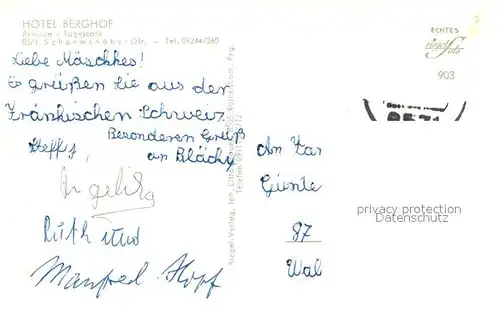 HOTEL BERGHOF
Pension - Tagescafé
8571 Schermshöhe/Ofr. - Tel. 09244/260
ECHTES
riegel
foto
903
Liebe Mäschkes!
Es grüßen Sie aus der
Fränkischen Schweiz
Besonderen Gruß
Steffy, an Bläcky
Angelika
Ruth und
Manfred Hopf
Riegel-Verlag, Inh. Otto
An Fam
Günte
87
Wal
privacy protection
Datenschutz